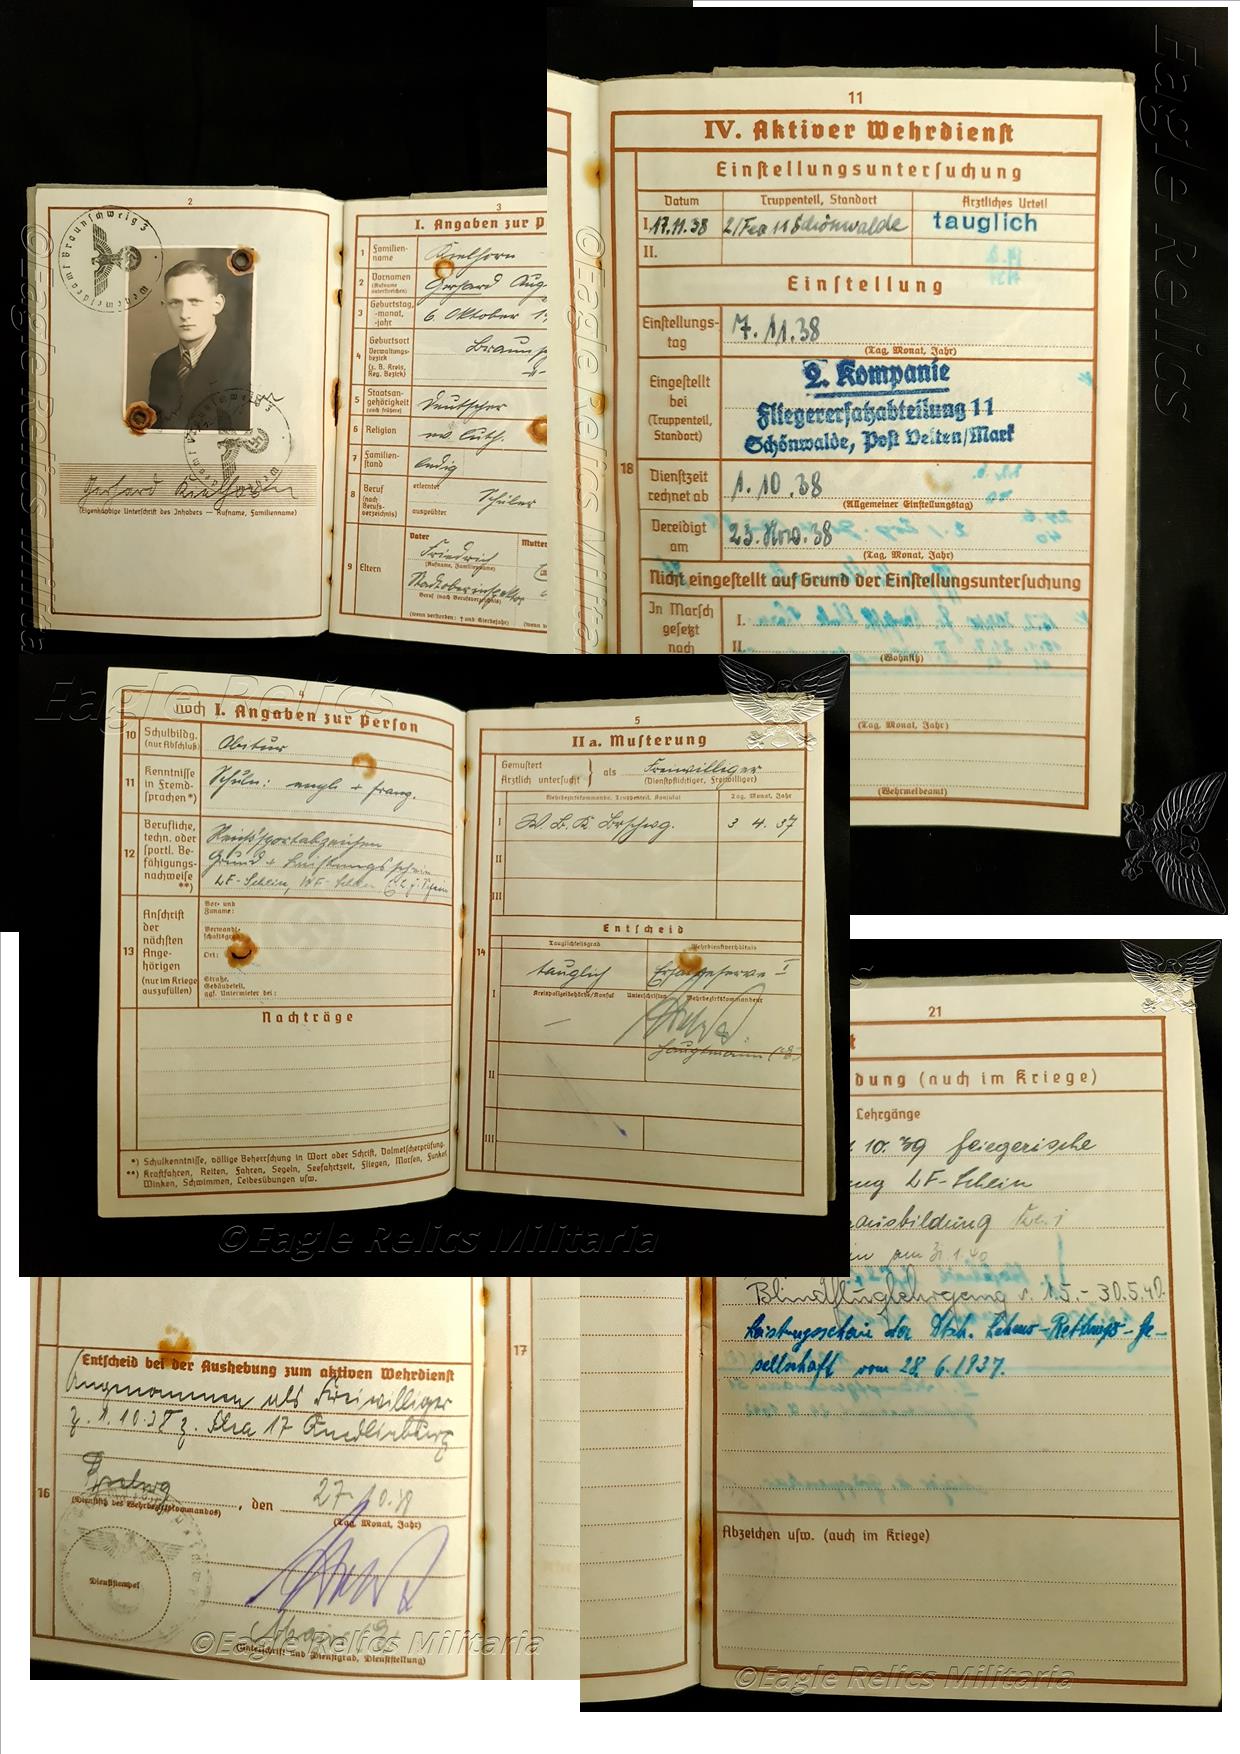 2
Wehrmeldeamt Braunschweig 3
Gerhard Kielhorn
(Eigenhändige Unterschrift des Inhabers — Rufname, Familienname)
3
I. Angaben zur Pe
1 Familien-
name
Kielhorn
2 Vornamen
(Rufname
unterstreichen)
Gerhard Aug
3 Geburtstag,
-monat,
-jahr
6. Oktober 19
4 Geburtsort
Verwaltungs-
bezirk
(z. B. Kreis,
Reg. Bezirk)
Braunsch
5 Staatsan-
gehörigkeit
(auch frühere)
Deutscher
6 Religion
ev. luth.
7 Familien-
stand
ledig
8 Beruf
(nach
Berufs-
verzeichnis)
erlernter
Schüler
ausgeübter
9 Eltern
Vater
Mutter
Friedrich
(Rufname, Familienname)
Stadtoberinspektor
Beruf (nach Berufsverzeichnis)
(wenn verstorben: † und Sterbejahr)
11
IV. Aktiver Wehrdienst
Einstellungsuntersuchung
Datum Truppenteil, Standort Ärztliches Urteil
I. 17.11.38 2/Fea 11 Schönwalde tauglich
II.
Einstellung
Einstellungs-
tag
7.11.38
(Tag, Monat, Jahr)
Eingestellt
bei
(Truppenteil,
Standort)
2. Kompanie
Fliegerersatzabteilung 11
Schönwalde, Post Velten/Mark
18
Dienstzeit
rechnet ab
1.10.38
(Allgemeiner Einstellungstag)
Vereidigt
am
23. Nov. 38
(Tag, Monat, Jahr)
Nicht eingestellt auf Grund der Einstellungsuntersuchung
In Marsch
gesetzt
nach
I.
II.
(Wohnsitz)
(Tag, Monat, Jahr)
(Wehrmeldeamt)
4
noch I. Angaben zur Person
10 Schulbildg.
(nur Abschluß)
Abitur
11 Kenntnisse
in Fremd-
sprachen *)
Schuln: engl. + franz.
12 Berufliche,
techn. oder
sportl. Be-
fähigungs-
nachweise
**)
Reichssportabzeichen
Grund + Leistungsschein
LF-Schein,
13 Anschrift
der
nächsten
Ange-
hörigen
(nur im Kriege
auszufüllen)
Vor- und
Zuname:
Verwandt-
schaftsgrad:
Ort:
Straße,
Gebäudeteil,
ggf. Untermieter bei:
Nachträge
*) Schulkenntnisse, völlige Beherrschung in Wort oder Schrift, Dolmetscherprüfung.
**) Kraftfahren, Reiten, Fahren, Segeln, Seefahrtzeit, Fliegen, Morsen, Funken,
Winken, Schwimmen, Leibesübungen usw.
5
II a. Musterung
Gemustert
Ärztlich untersucht } als Freiwilliger
(Dienstpflichtiger, Freiwilliger)
Wehrbezirkskommando, Truppenteil, Konsulat Tag, Monat, Jahr
I W. B. K Brschwg. 3 4. 37
II
III
14
Entscheid
Tauglichkeitsgrad Wehrdienstverhältnis
I tauglich Ersatzreserve I
Kreispolizeibehörde/Konsul Unterschriften Wehrbezirkskommandeur
Hauptmann (E)
II
III
16
Entscheid bei der Aushebung zum aktiven Wehrdienst
Angenommen als Freiwilliger
z. 1. 10. 38 z. 17 Quedlinburg
, den 27.10.38
(Dienstsitz des Wehrbezirkskommandos) (Tag, Monat, Jahr)
Dienststempel
Major
(Unterschrift und Dienstgrad, Dienststellung)
17
21
t
dung (auch im Kriege)
Lehrgänge
10.39 fliegerische
ung LF-Schein
rausbildung
in am 31.1.40
Blindfluglehrgang v. 1.5. – 30.5.40.
Leistungsschein der Dtsch. Lebens-Rettungs-Ge-
sellschaft vom 28.6.1937.
Abzeichen usw. (auch im Kriege)
©Eagle Relics Militaria
©Eagle Relics Militaria
Eagle Relics
Eagle Relics
©Eagle Relics Militaria
©Eagle Relics Militaria
©Eagle Relics Militaria